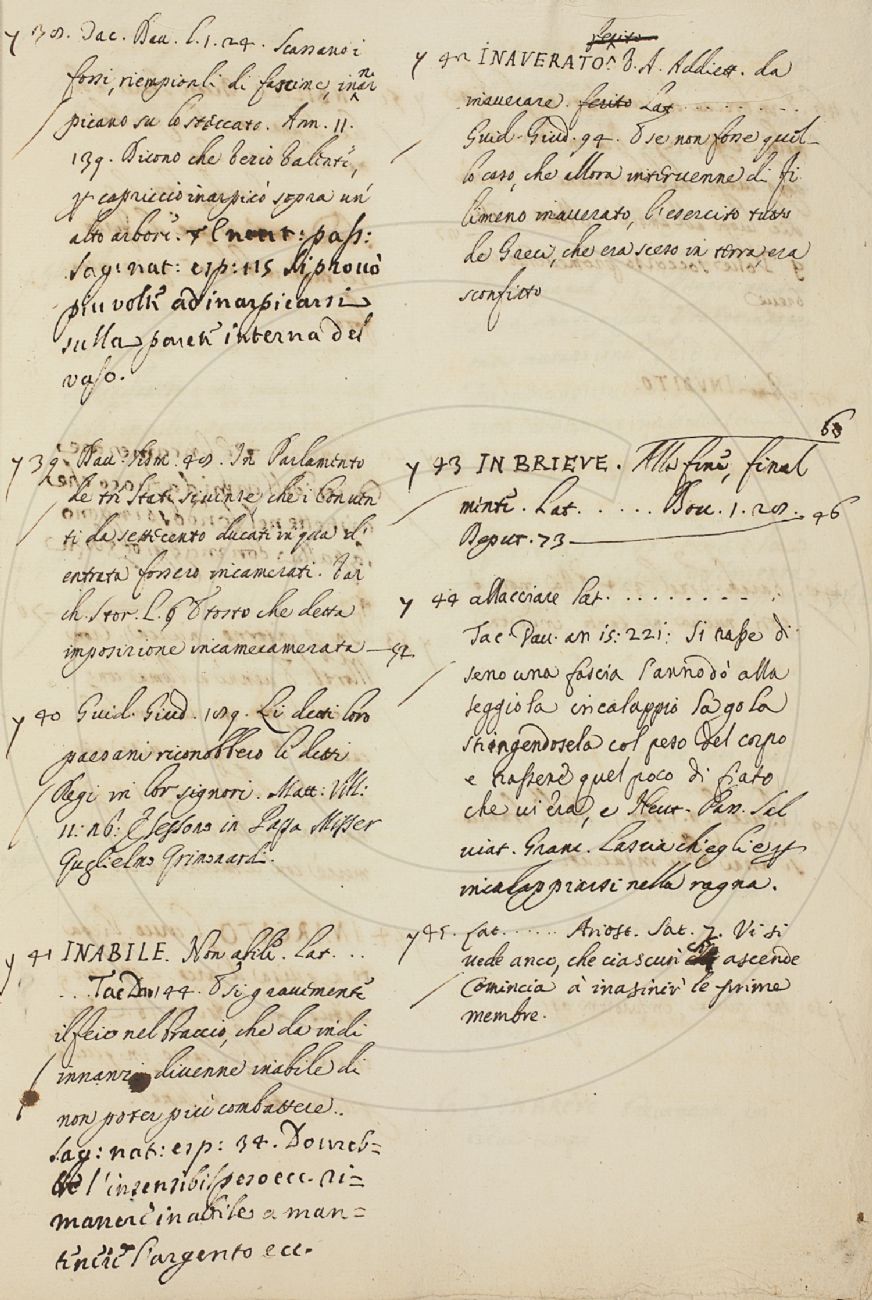 y 38. Dac. Dav. L. 1. 24. Scassano i
fossi, riempionli di fascine, inar
picano su lo steccato. Ann. 11.
139. Dicono che
capriccio inarpicò sopra un'
alto arbore.
Sag: nat: esp: 115 si provò
piu volte ad inarpicarsi
sulla parete interna del
vaso.
y 39. Dav. Scism. 48. In Parlamento
de tre Stati
ti da settecento ducati in qua d'
entrata fossero incamerati. Var
ch. Stor. L. 9 E tosto che detta
imposizione incamecamerata — 92
y 40 Guid. Giud. 189. Li detti loro
paesani riconobbero li detti
Regi in lor signori. Matt: Vill:
11: 26: E fessono in Messer
Guglielmo Grimoardi.
y 41 INABILE. Non abile. Lat. . .
. . . Tac Dav 144. E sì gravemente
il ferì nel braccio, che da indi
innanzi divenne inabile di
non poter più combattere.
Sag: nat: esp: 34. Dovreb=
be l'insensibil peso ecc. ri=
manere inabile a man=
tenere l'argento ecc.
ferito
y 42 INAVERATO. V. A. Addiett. da
inaverare. ferito Lat . . . . . . . .
Guid. Giud. 94. E se non fosse quel
lo caso, che allora intervenne di Fi
limeno inaverato, l'esercito tutto
de Greci, che era sceso in terra, era
sconfitto
63
y 43 IN BRIEVE. Alla fine, final
mente. Lat. . . . . . Bou. 1. 28. 46
Reput. 73 —
y 44 allacciare Lat. . . . . . . . . .
Tac. Dav. an 15: 221: Si trasse di
seno una fascia l'annodò alla
seggiola incalappiò la gola
stringendosela col peso del corpo
e trassene quel poco di fiato
che vi era, e Salv
viat. Granc. Lascia ch'egli es
incalappiarsi nella ragna.
y 45. Lat. . . . . Ariost. Sat. 7. Vi si
vede anco, che ciascun che ascende
Comincia à inasinir le prime
membre.